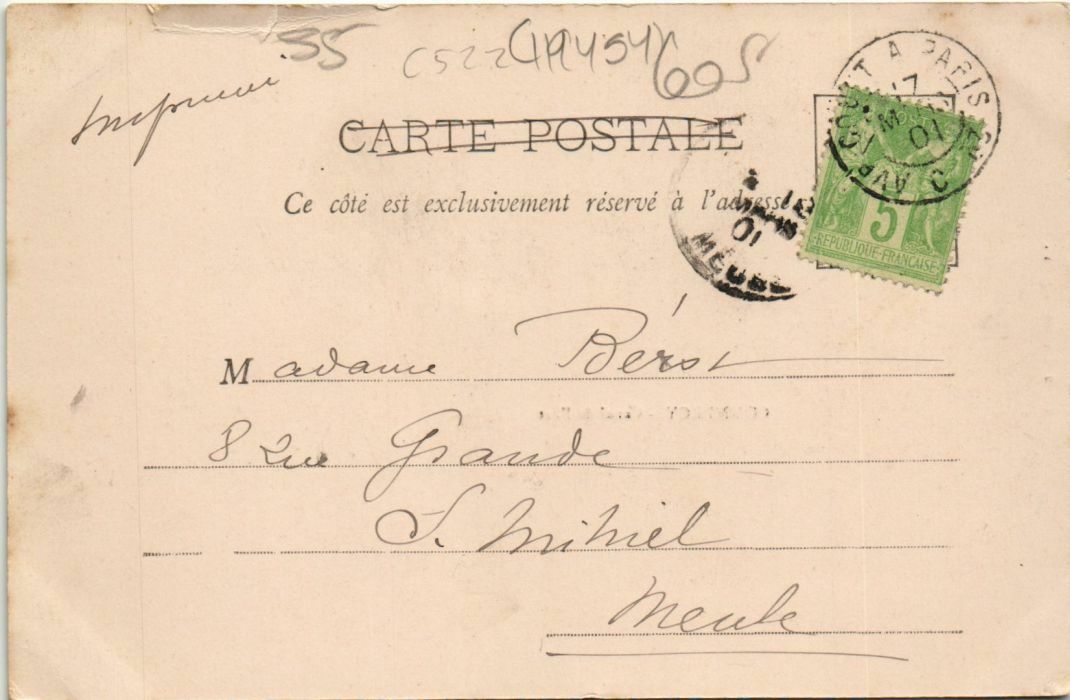 35 C522 (19454) 605
Imprimé
CARTE POSTALE
Ce côté est exclusivement réservé à l'adresse
AVRICOURT A PARIS
17
01
5
REPUBLIQUE FRANÇAISE
01
MEUSE
Madame Bérst
8 Rue Grande
S. Mihiel
Meuse